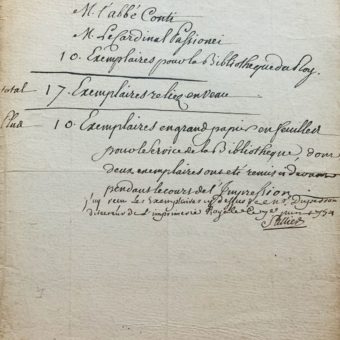 M. l'abbé Conti
M. Le Cardinal Passionei
10. Exemplaires pour la Bibliotheque du Roy.
total 17. Exemplaires reliez en veau
Plus 10. Exemplaires en grand papier en feuilles
pour le Service de la Bibliotheque, dont
deux exemplaires ont été remis
pendant le cours de l'Impression.
J'ay recu les Exemplaires cy dessus
directeur de l'imprimerie Royalle Ce juin
Sallier